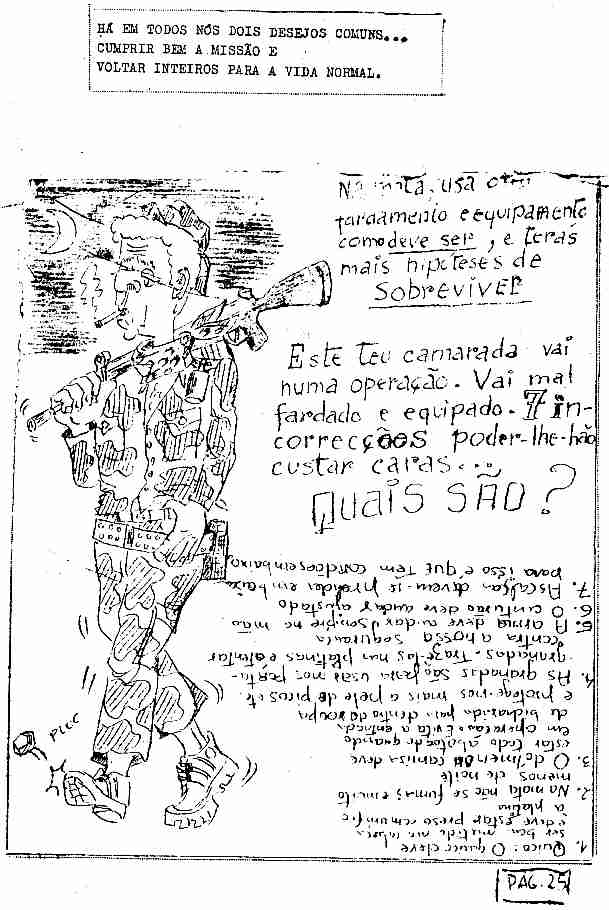 HÁ EM TODOS NÓS DOIS DESEJOS COMUNS...
CUMPRIR BEM A MISSÃO E
VOLTAR INTEIROS PARA A VIDA NORMAL.
Na mata, usa o teu
fardamento e equipamento
como deve ser, e terás
mais hipoteses de
SobreviveR
Este teu camarada vai
numa operação. Vai mal
fardado e equipado. 7 in-
correcções poder-lhe-hão
custar caras...
Quais SÃO?
PLOC
1. Quico: O quico deve
ser bem metido na cabeça
e deve estar preso com um fio
à platina
2. Na mata não se fuma; e muito
menos de noite
3. O dolmen ou camisa deve
estar todo abotoado quando
em operação. Evita a entrada
de bicharada para dentro da roupa
e protege-nos mais a pele de picos etc.
4. As granadas são para usar nos porta-
granadas. Trazê-las nas platinas é
contra a nossa segurança
5. A arma deve andar sempre na mão
6. O cinturão deve andar ajustado
7. As calças devem-se prender em baixo
para isso é que têm cordões em baixo
PÁG. 25